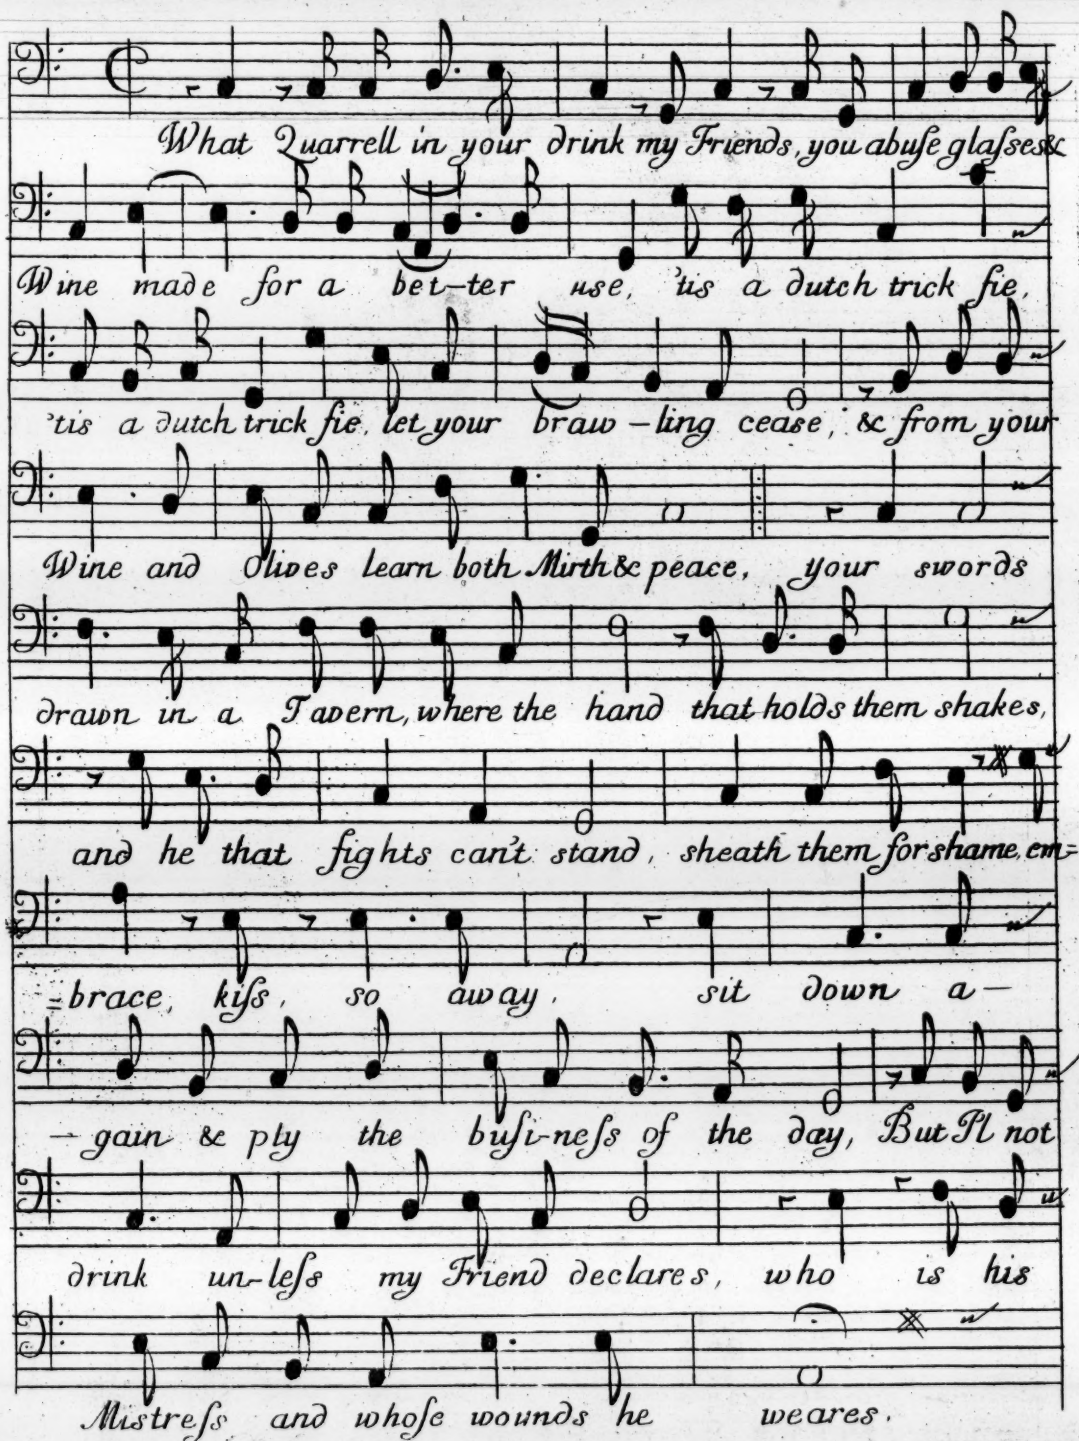 What Quarrell in your drink my Friends, you abuſe glaſses &
Wine made for a bet-ter use, 'tis a dutch trick fie,
'tis a dutch trick fie, let your braw-ling cease, & from your
Wine and Olives learn both Mirth & peace, your swords
drawn in a Tavern, where the hand that holds them shakes,
and he that fights can't stand, sheath them for shame, em=
=brace, kiſs, so away, sit down a-
-gain & ply the buſi-neſs of the day, But I'l not
drink un-leſs my Friend declares, who is his
Mistreſs and whoſe wounds he weares.